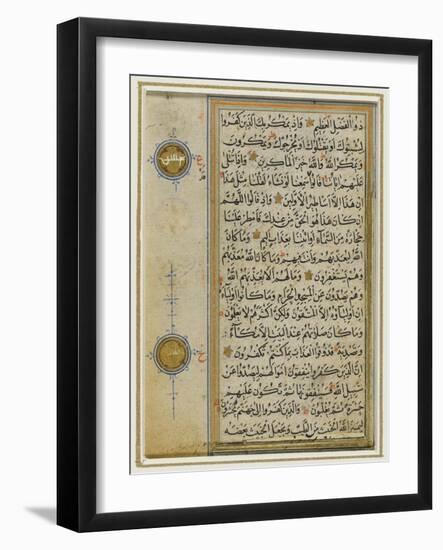 ذُو الْفَضْلِ الْعَظِيمِ وَإِذْ يَمْكُرُ بِكَ الَّذِينَ كَفَرُوا
لِيُثْبِتُوكَ أَوْ يَقْتُلُوكَ أَوْ يُخْرِجُوكَ وَيَمْكُرُونَ
وَيَمْكُرُ اللَّهُ وَاللَّهُ خَيْرُ الْمَاكِرِينَ وَإِذَا تُتْلَى
عَلَيْهِمْ آيَاتُنَا قَالُوا قَدْ سَمِعْنَا لَوْ نَشَاءُ لَقُلْنَا مِثْلَ هَذَا
إِنْ هَذَا إِلَّا أَسَاطِيرُ الْأَوَّلِينَ وَإِذْ قَالُوا اللَّهُمَّ
إِنْ كَانَ هَذَا هُوَ الْحَقَّ مِنْ عِنْدِكَ فَأَمْطِرْ عَلَيْنَا
حِجَارَةً مِنَ السَّمَاءِ أَوِ ائْتِنَا بِعَذَابٍ أَلِيمٍ وَمَا كَانَ
اللَّهُ لِيُعَذِّبَهُمْ وَأَنْتَ فِيهِمْ وَمَا كَانَ اللَّهُ مُعَذِّبَهُمْ
وَهُمْ يَسْتَغْفِرُونَ وَمَا لَهُمْ أَلَّا يُعَذِّبَهُمُ اللَّهُ
وَهُمْ يَصُدُّونَ عَنِ الْمَسْجِدِ الْحَرَامِ وَمَا كَانُوا أَوْلِيَاءَهُ
إِنْ أَوْلِيَاؤُهُ إِلَّا الْمُتَّقُونَ وَلَكِنَّ أَكْثَرَهُمْ لَا يَعْلَمُونَ
وَمَا كَانَ صَلَاتُهُمْ عِنْدَ الْبَيْتِ إِلَّا مُكَاءً
وَتَصْدِيَةً فَذُوقُوا الْعَذَابَ بِمَا كُنْتُمْ تَكْفُرُونَ
إِنَّ الَّذِينَ كَفَرُوا يُنْفِقُونَ أَمْوَالَهُمْ لِيَصُدُّوا عَنْ
سَبِيلِ اللَّهِ فَسَيُنْفِقُونَهَا ثُمَّ تَكُونُ عَلَيْهِمْ
حَسْرَةً ثُمَّ يُغْلَبُونَ وَالَّذِينَ كَفَرُوا إِلَى جَهَنَّمَ يُحْشَرُونَ
لِيَمِيزَ اللَّهُ الْخَبِيثَ مِنَ الطَّيِّبِ وَيَجْعَلَ الْخَبِيثَ بَعْضَهُ
خمس